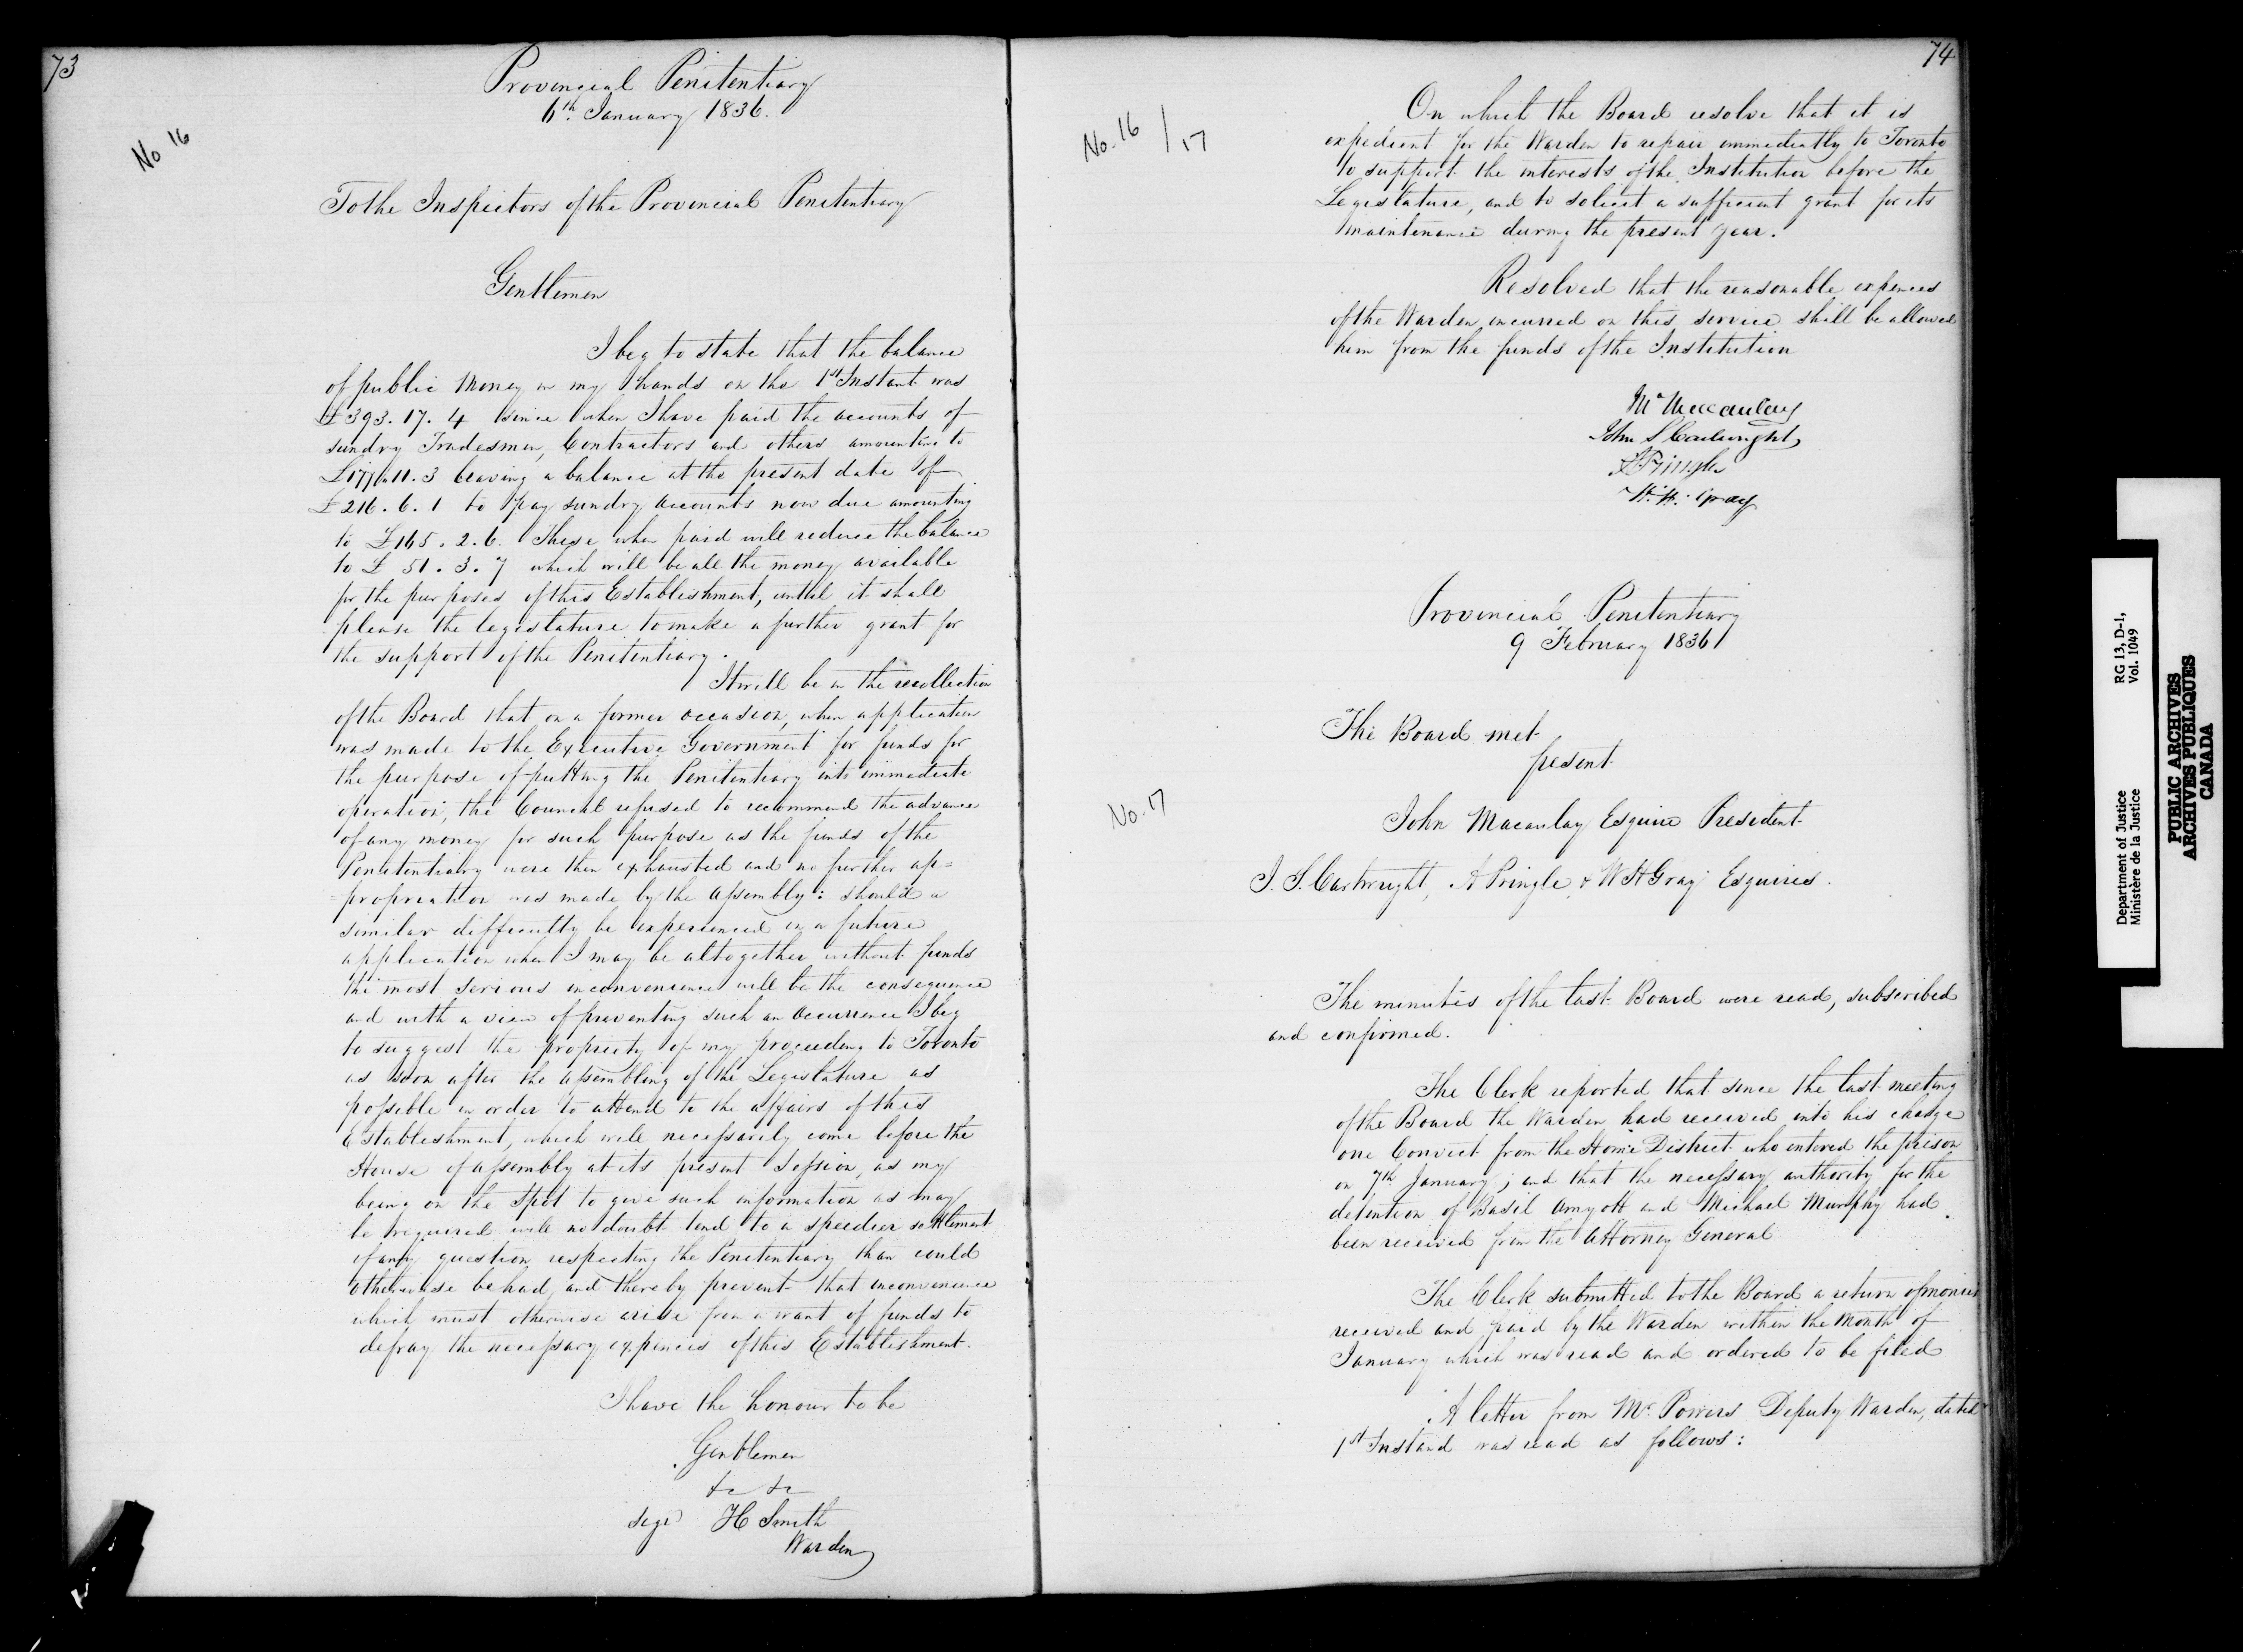 73
Provincial Penitentiary
6th. January 1836.
No 16
To the Inspectors of the Provincial Penitentiary
Gentlemen
I beg to state that the balance
of public Money in my hands on the 1st Instant was
£393.17.4 since when I have paid the accounts of
sundry Tradesmen, Contractors and others amounting to
£177.11.3 leaving a balance at the present date of
£216.6.1 to pay sundry accounts now due amounting
to £165.2.6. These when paid will reduce the balance
to £51.3.7 which will be all the money available
for the purposes of this Establishment, until it shall
please the legislature to make a further grant for
the support of the Penitentiary.
It will be in the recollection
of the Board that on a former occasion, when application
was made to the Executive Government for funds for
the purpose of putting the Penitentiary into immediate
operation, the Council refused to recommend the advance
of any money for such purpose as the funds of the
Penitentiary were then exhausted and no further ap=
=propriation was made by the Assembly: should a
similar difficulty be experienced in a future
application when I may be altogether without funds
the most serious inconvenience will be the consequence
and with a view of preventing such an Occurrence I beg
to suggest the propriety of my proceeding to Toronto
as soon after the assembling of the Legislature as
possible in order to attend to the affairs of this
Establishment, which will necessarily come before the
House of Assembly at its present Session, as my
being on the spot to give such information as may
be required will no doubt tend to a speedier settlement
of any question respecting the Penitentiary than could
otherwise be had, and thereby prevent that inconvenience
which must otherwise arise from a want of funds to
defray the necessary expences of this Establishment.
I have the honour to be
Gentlemen
&c &c
sigd H Smith
Warden
74
No. 16 / 17
On which the Board resolve that it is
expedient for the Warden to repair immediately to Toronto
to support the interests of the Institution before the
Legislature, and to solicit a sufficient grant for its
maintenance during the present year.
Resolved that the reasonable expences
of the Warden incurred on this service shall be allowed
him from the funds of the Institution
Macaulay
John S Cartwright
A Pringle
W. H. Gray
Provincial Penitentiary
9 February 1836
The Board met
present
No. 17
John Macaulay Esquire President
J. S. Cartwright, A Pringle & W H Gray Esquires.
The minutes of the last Board were read, subscribed
and confirmed.
The Clerk reported that since the last meeting
of the Board the Warden had received into his charge
one Convict from the Home District who entered the prison
on 7th January; and that the necessary authority for the
detention of Basil Amyott and Michael Murphy had
been received from the Attorney General.
The Clerk submitted to the Board a return of monies
received and paid by the Warden within the Month of
January which was read and ordered to be filed
A letter from Mr. Powers Deputy Warden, dated
1st Instand was read as follows:
Department of Justice RG 13, D-1,
Ministère de la Justice Vol. 1049
PUBLIC ARCHIVES
ARCHIVES PUBLIQUES
CANADA